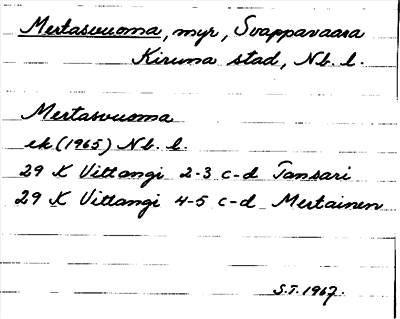 Mertasvuoma, myr, Svappavaara
Kiruna stad, Nb. l.
Mertasvuoma
ek (1965) Nb. l.
29 K Vittangi 2-3 c-d Tansari
29 K Vittangi 4-5 c-d Mertainen
S.T. 1967.